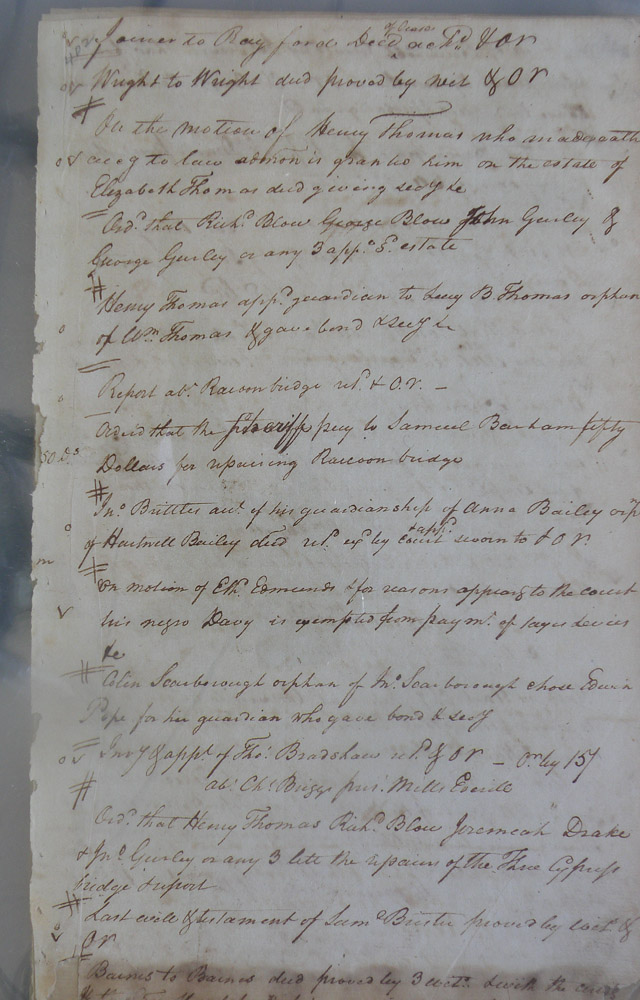 Joiner to Rayford Deed of Lease ackd & Or
Wright to Wright deed proved by wit & Or
On the motion of Henry Thomas who made oath
accg to law admon is gran to him on the estate of
Elizabeth Thomas decd giving secy &c
Ord. that Richd Blow George Blow John Gurley &
George Gurley or any 3 appe sd estate
Henry Thomas appd guardian to B Thomas orphan
of Wm Thomas & gave bond & secy &c
Report abt Racoon bridge retd & O.r. –
Ordered that the sheriff pay to Samuel Barham fifty
50 Ds
Dollars for repairing Racoon bridge
Jno Brittles acct of his guardianship of Anna Bailey orp
of Hartwell Bailey decd retd exd by court & appd sworn to & O r.
m
On motion of Eth. Edmunds & for reasons appearg to the court
his negro Davy is exempted from paymt of levies
&c
Scarborough orphan of Jno Scarborough chose Edwin
Pope for his guardian who gave bond & secy
Invy & appt of Tho. Bradshaw retd & Or – Or by 15/
abt Chs Briggs pres. Mills Everile
Ord. that Henry Thomas Richd Blow Jeremiah Drake
& Jno Gurley or any 3 lett the repairs of the Three Cypress
bridge & report
Last will & testament of Saml proved by wit &
Or
Barnes to Barnes deed proved by 3 wits & with the